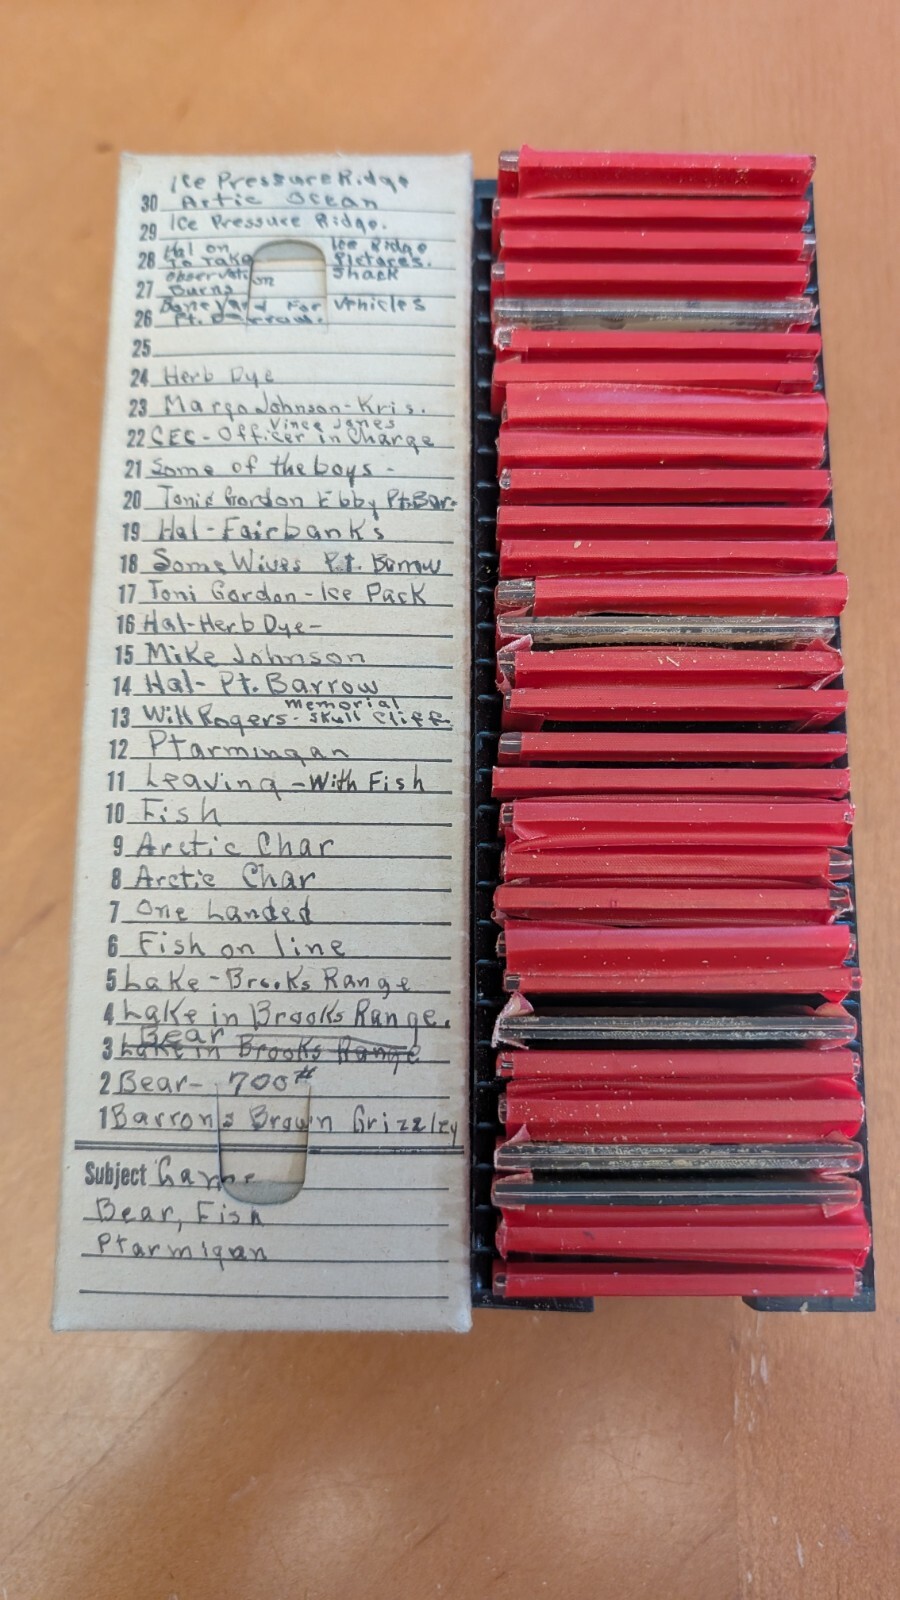 Ice Pressure Ridge
30 Artic Ocean
29 Ice Pressure Ridge.
28 Hal on Ice Ridge
To Take Pictures.
Observation Shack
27 Burns
Bone Yard For Vehicles
26 Pt. Barrow.
25
24 Herb Dye
23 Margo Johnson-Kris.
Vince James
22 CEC-Officer in Charge
21 Some of the boys -
20 Tonie Gordon Ebby Pt.Bar.
19 Hal-Fairbanks
18 Some Wives Pt. Barrow
17 Toni Gordon-Ice Pack
16 Hal-Herb Dye-
15 Mike Johnson
14 Hal- Pt. Barrow
Memorial
13 Will Rogers- Skull Cliff
12 Ptarmingan
11 Leaving -With Fish
10 Fish
9 Arctic Char
8 Arctic Char
7 One Landed
6 Fish on line
5 Lake-Brooks Range
4 Lake in Brooks Range.
Bear
3 Lake in Brooks Range
2 Bear- 700#
1 Barrons Brown Grizzley
Subject Game
Bear, Fish
Ptarmigan